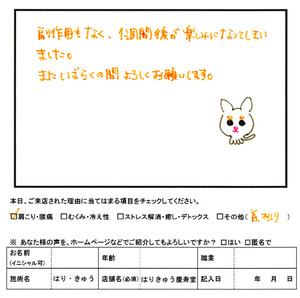 副作用もなく、1週間後が楽しみになってしまい
ました。
またしばらくの間よろしくお願いします。
本日、ご来店された理由に当てはまる項目をチェックしてください。
☑肩こり・腰痛 □むくみ・冷え性 □ストレス解消・癒し・デトックス □その他( 首こり )
※ あなた様の声を、ホームページなどでご紹介してもよろしいですか? □はい □匿名で
お名前
(イニシャル可) 年齢 職業
施術名 はり・きゅう 店舗名(必須) はりきゅう慶寿堂 記入日 年 月 日